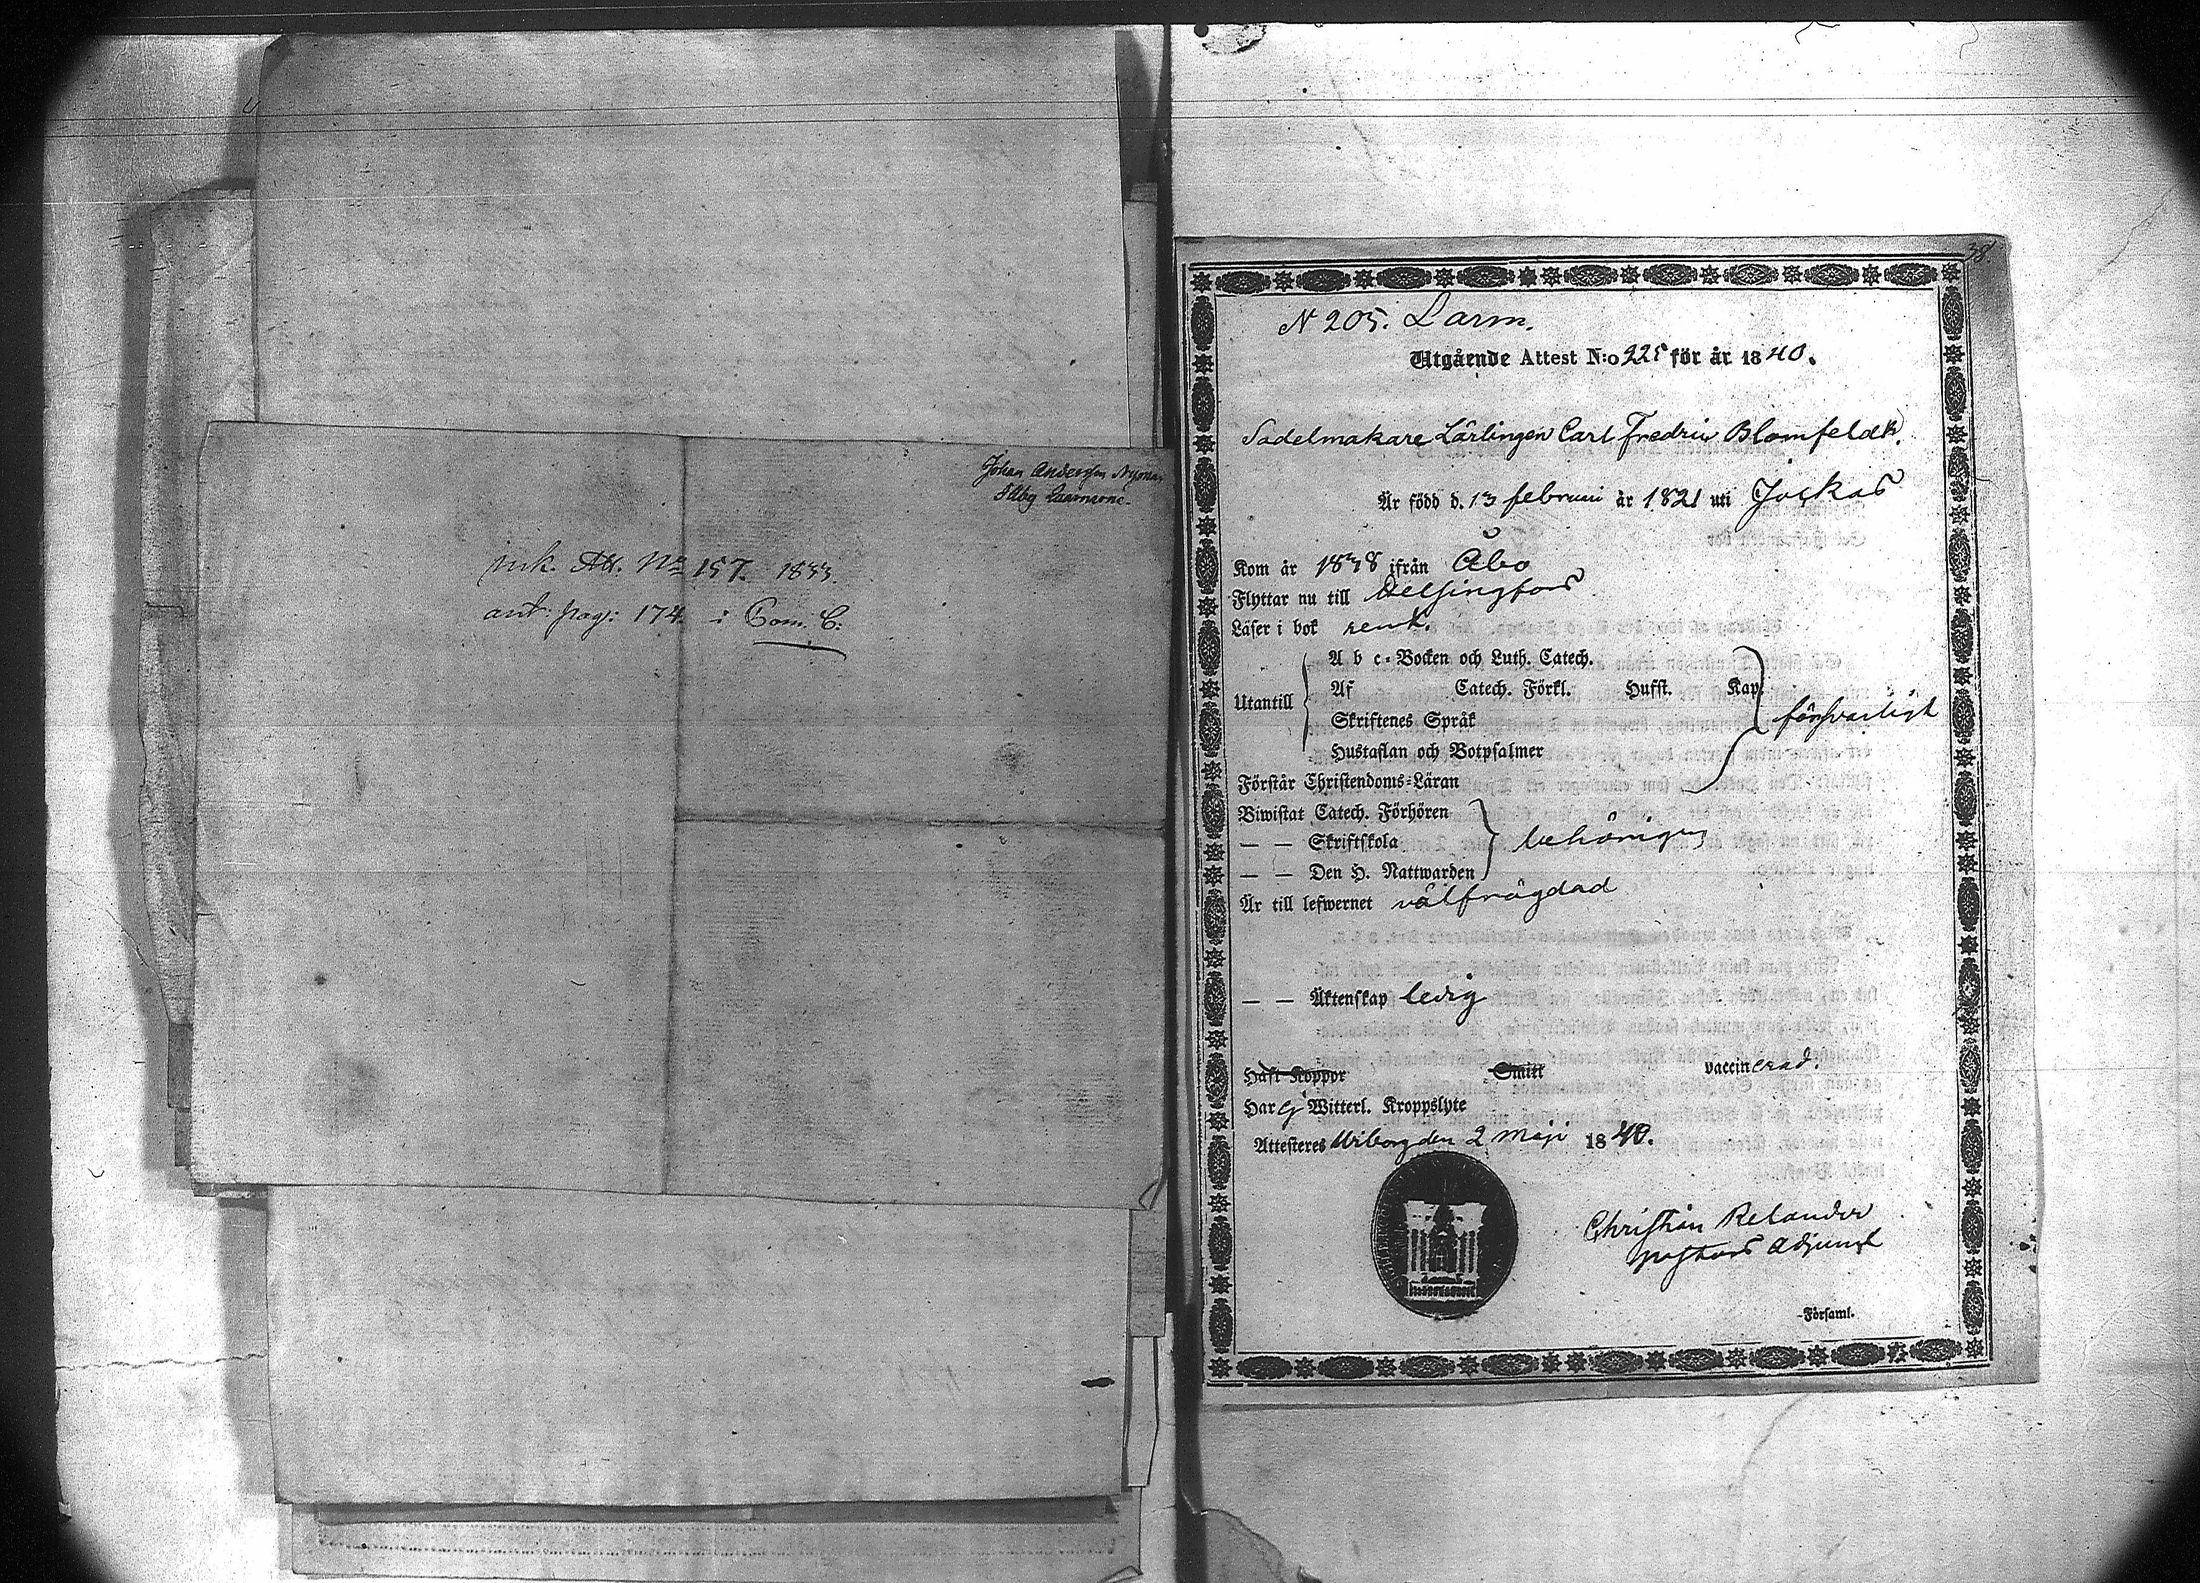 Johan Andersson Nyman
ink. Att. No 157. 1833.
ant. pag: 174 i Com. C:
38
N 205. Larm.
Utgående Attest N:o 225 för år 1840.
Sadelmakare Lärlingen Carl Fredric Blomfeldt.
Är född d. 13 februari år 1821 uti Jockas
Kom år 1838 ifrån Åbo
Flyttar nu till Helsingfors
Läser i bok rent.
A b c-Bocken och Luth. Catech.
Utantill Af Catech. Förkl. Hufst. Kap. försvarligt
Skriftenes Språk
Hustaflan och Botpsalmer
Förstår Christendoms-Läran
Biwistat Catech. Förhören
— — Skriftskola behörigen
— — Den H. Nattwarden
Är till lefwernet välfrägdad
— — Äktenskap ledig
Haft Koppor Smitt vaccinerad.
Har ej Witterl. Kroppslyte
Attesteres Wiborg den 2 Maji 1840.
Christian Relander
Pastors Adjunct
Församl.